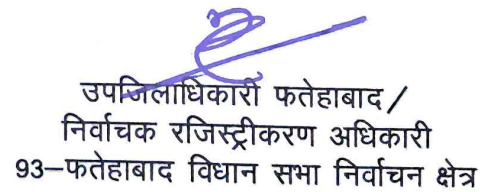 उपजिलाधिकारी फतेहाबाद/
निर्वाचक रजिस्ट्रीकरण अधिकारी
93–फतेहाबाद विधान सभा निर्वाचन क्षेत्र